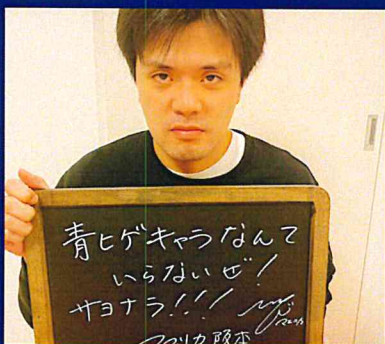 青ヒゲキャラなんて
いらないぜ!
サヨナラ!!!
阪本